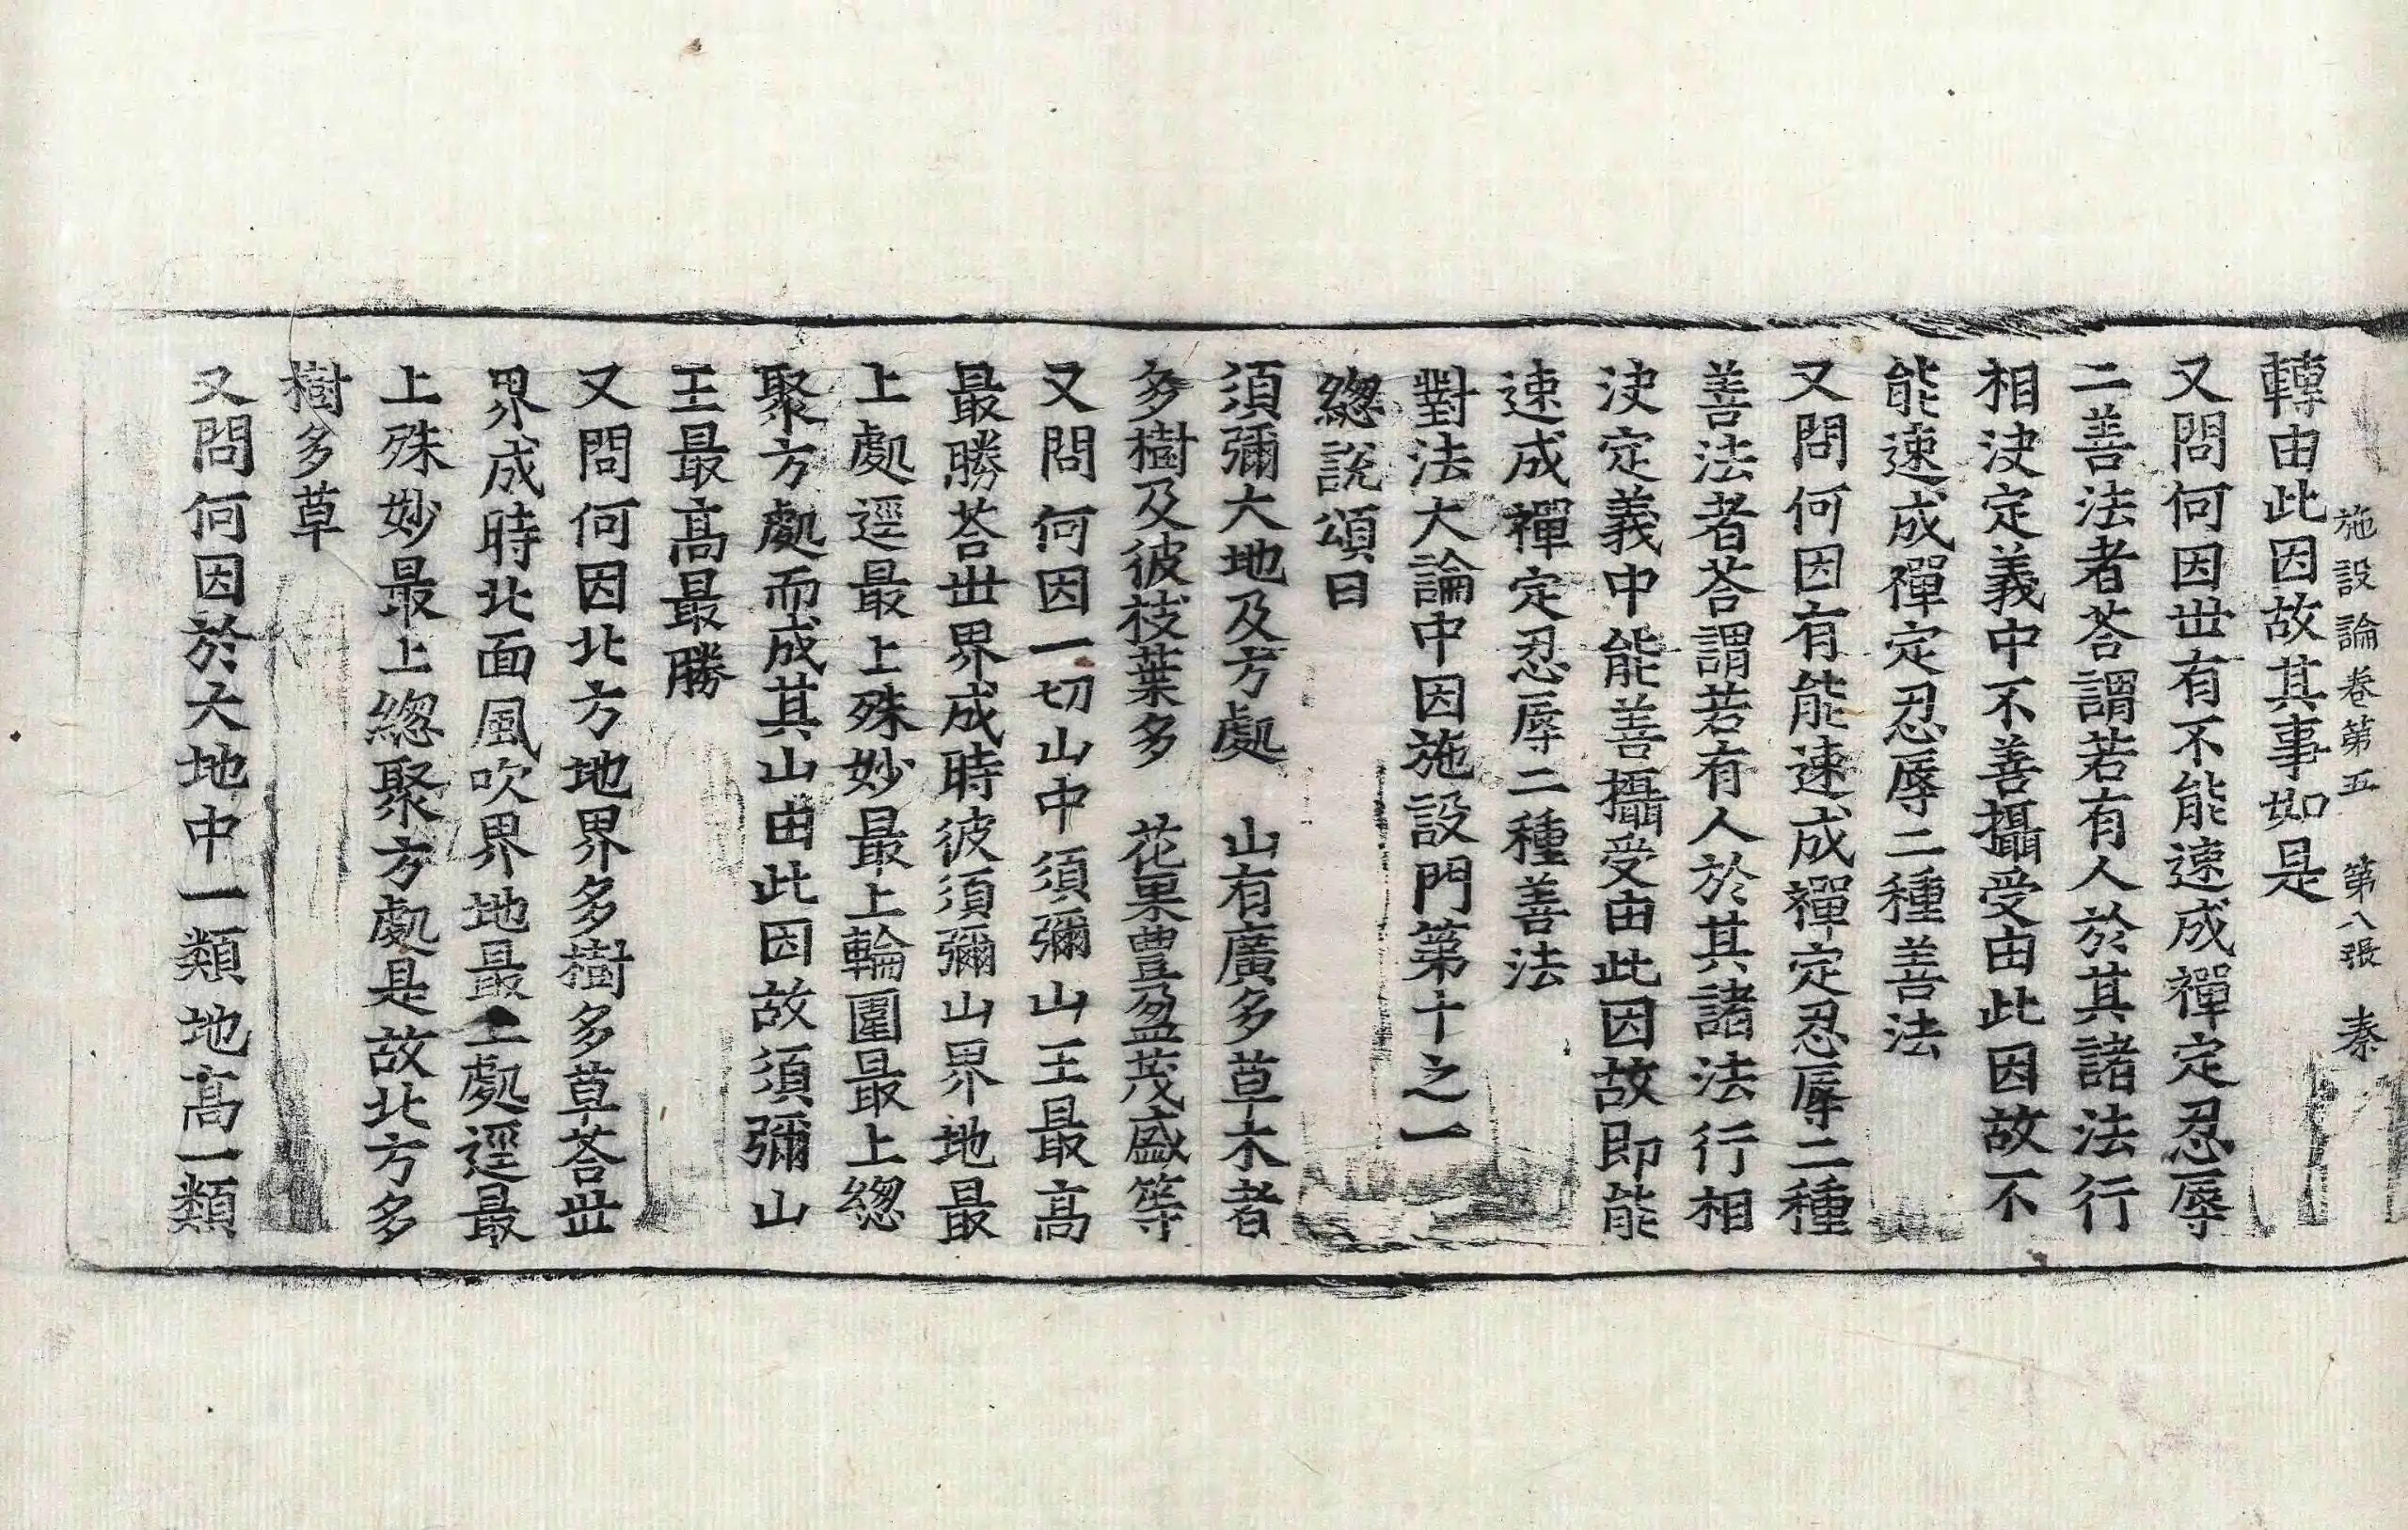 施設論卷第五　第八張　秦
轉由此因故其事如是
又問何因世有不能速成禪定忍辱
二善法者荅謂若有人於其諸法行
相決定義中不善攝受由此因故不
能速成禪定忍辱二種善法
又問何因有能速成禪定忍辱二種
善法者荅謂若有人於其諸法行相
決定義中能善攝受由此因故即能
速成禪定忍辱二種善法
對法大論中因施設門第十之一
緫說頌目
須彌大地及方處　山有廣多草木者
多樹及彼枝葉多　花果豊盈茂盛等
又問何因一切山中須彌山王最高
最勝荅世界成時彼須彌山界地最
上處逕最上殊妙最上輪圍最上緫
聚方處而成其山由此因故須彌山
王最高最勝
又問何因北方地界多樹多草荅世
界成時北面風吹界地最上處逕最
上殊妙最上緫聚方處是故北方多
樹多草
又問何因於大地中一類地高一類